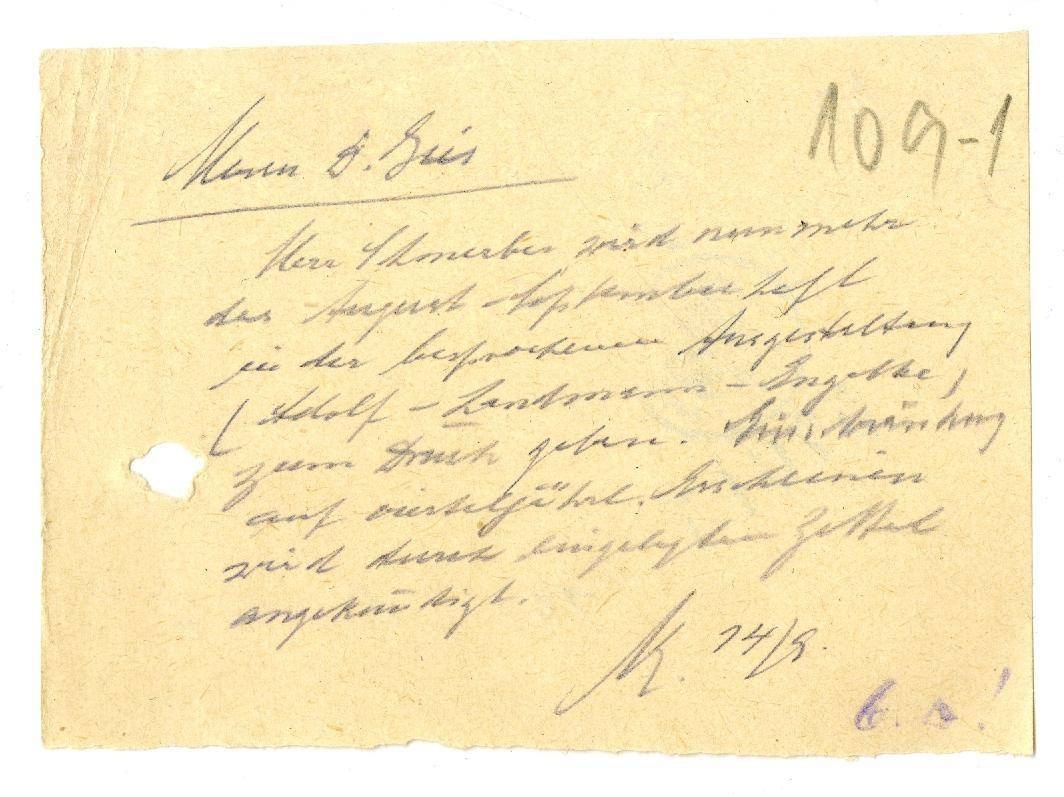 109-1
Herrn D. Gris
Herr Schmerber wird nunmehr
das August-Septemberheft
in der besprochenen Ausgestaltung
(Adolf - Landmann - Engelke)
zum Druck geben. Einschränkung
auf vierteljährl. Erscheinen
wird durch eingelegten Zettel
angekündigt.
K. 14/9.